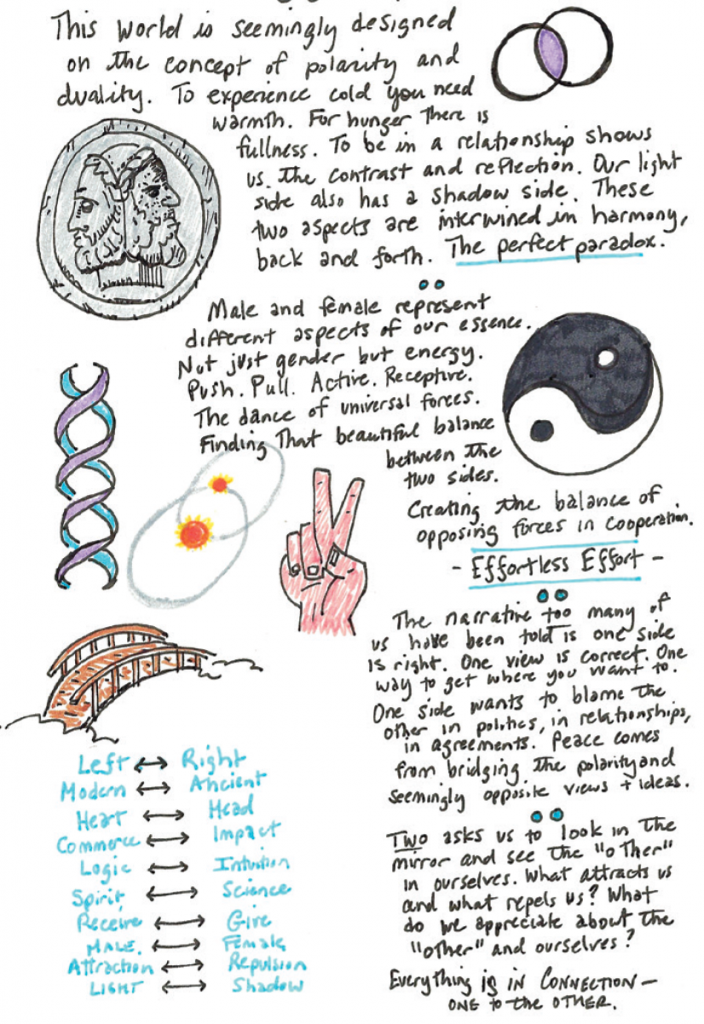 This world is seemingly designed
on the concept of polarity and
duality. To experience cold you need
warmth. For hunger there is
fullness. To be in a relationship shows
us the contrast and reflection. Our light
side also has a shadow side. These
two aspects are interwined in harmony,
back and forth. The perfect paradox.
Male and female represent
different aspects of our essence.
Not just gender but energy.
Push. Pull. Active. Receptive.
The dance of universal forces.
Finding That beautiful balance
between the
two sides.
Creating the balance of
opposing forces in cooperation.
- Effortless Effort -
The narrative too many of
us have been told is one side
is right. One view is correct. One
way to get where you want to.
One side wants to blame the
other in politics, in relationships,
in agreements. Peace comes
from bridging the polarity and
seemingly opposite views + ideas.
Left ↔ Right
Modern ↔ Ancient
Heart ↔ Head
Commerce ↔ Impact
Logic ↔ Intuition
Spirit ↔ Science
Receive ↔ Give
MALE. ↔ Female
Attraction ↔ Repulsion
LIGHT ↔ Shadow
Two asks us to look in the
mirror and see the "other"
in ourselves. What attracts us
and what repels us? What
do we appreciate about the
"other" and ourselves?
Everything is IN CONNECTION -
ONE to the OTHER.